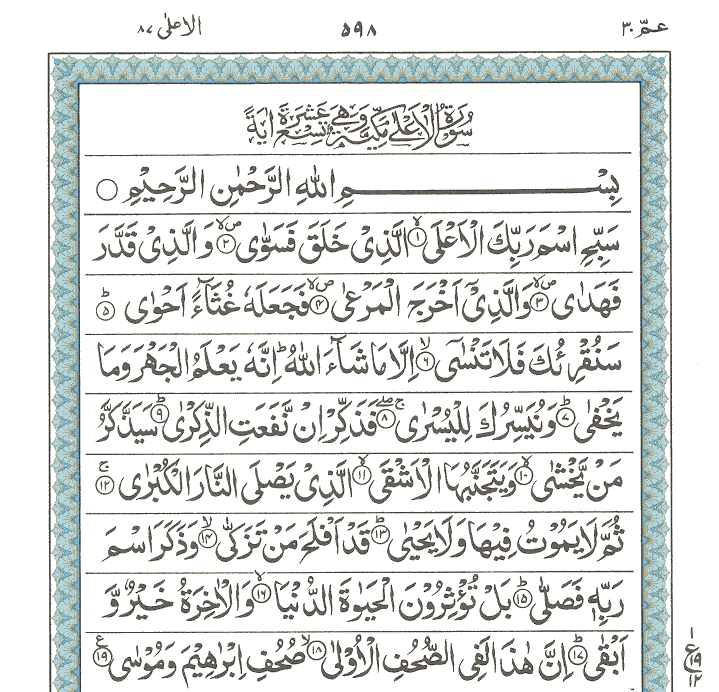 عمّ ۳۰ ۵۹۸ الاعلى ۸۷
سُوْرَةُ الْاَعْلٰى مَكِّيَّةٌ وَّهِىَ تِسْعَ عَشْرَةَ اٰيَةً
بِسْمِ اللّٰهِ الرَّحْمٰنِ الرَّحِيْمِ ○
سَبِّحِ اسْمَ رَبِّكَ الْاَعْلَى ۙ﴿۱﴾ الَّذِىْ خَلَقَ فَسَوّٰى ۪ۙ﴿۲﴾ وَالَّذِىْ قَدَّرَ
فَهَدٰى ۪ۙ﴿۳﴾ وَالَّذِىْۤ اَخْرَجَ الْمَرْعٰى ۪ۙ﴿۴﴾ فَجَعَلَهٗ غُثَآءً اَحْوٰى ؕ﴿۵﴾
سَنُقْرِئُكَ فَلَا تَنْسٰٓى ۙ﴿۶﴾ اِلَّا مَا شَآءَ اللّٰهُ ؕ اِنَّهٗ يَعْلَمُ الْجَهْرَ وَمَا
يَخْفٰى ؕ﴿۷﴾ وَنُيَسِّرُكَ لِلْيُسْرٰى ۚۖ﴿۸﴾ فَذَكِّرْ اِنْ نَّفَعَتِ الذِّكْرٰى ؕ﴿۹﴾ سَيَذَّكَّرُ
مَنْ يَّخْشٰى ۙ﴿۱۰﴾ وَيَتَجَنَّبُهَا الْاَشْقَى ۙ﴿۱۱﴾ الَّذِىْ يَصْلَى النَّارَ الْكُبْرٰى ۚ﴿۱۲﴾
ثُمَّ لَا يَمُوْتُ فِيْهَا وَلَا يَحْيٰى ؕ﴿۱۳﴾ قَدْ اَفْلَحَ مَنْ تَزَكّٰى ۙ﴿۱۴﴾ وَذَكَرَ اسْمَ
رَبِّهٖ فَصَلّٰى ؕ﴿۱۵﴾ بَلْ تُؤْثِرُوْنَ الْحَيٰوةَ الدُّنْيَا ۙ﴿۱۶﴾ وَالْاٰخِرَةُ خَيْرٌ وَّ
اَبْقٰى ؕ﴿۱۷﴾ اِنَّ هٰذَا لَفِى الصُّحُفِ الْاُوْلٰى ۙ﴿۱۸﴾ صُحُفِ اِبْرٰهِيْمَ وَمُوْسٰى ﴿۱۹﴾ ع
۱
ع ۱۹
۱۲